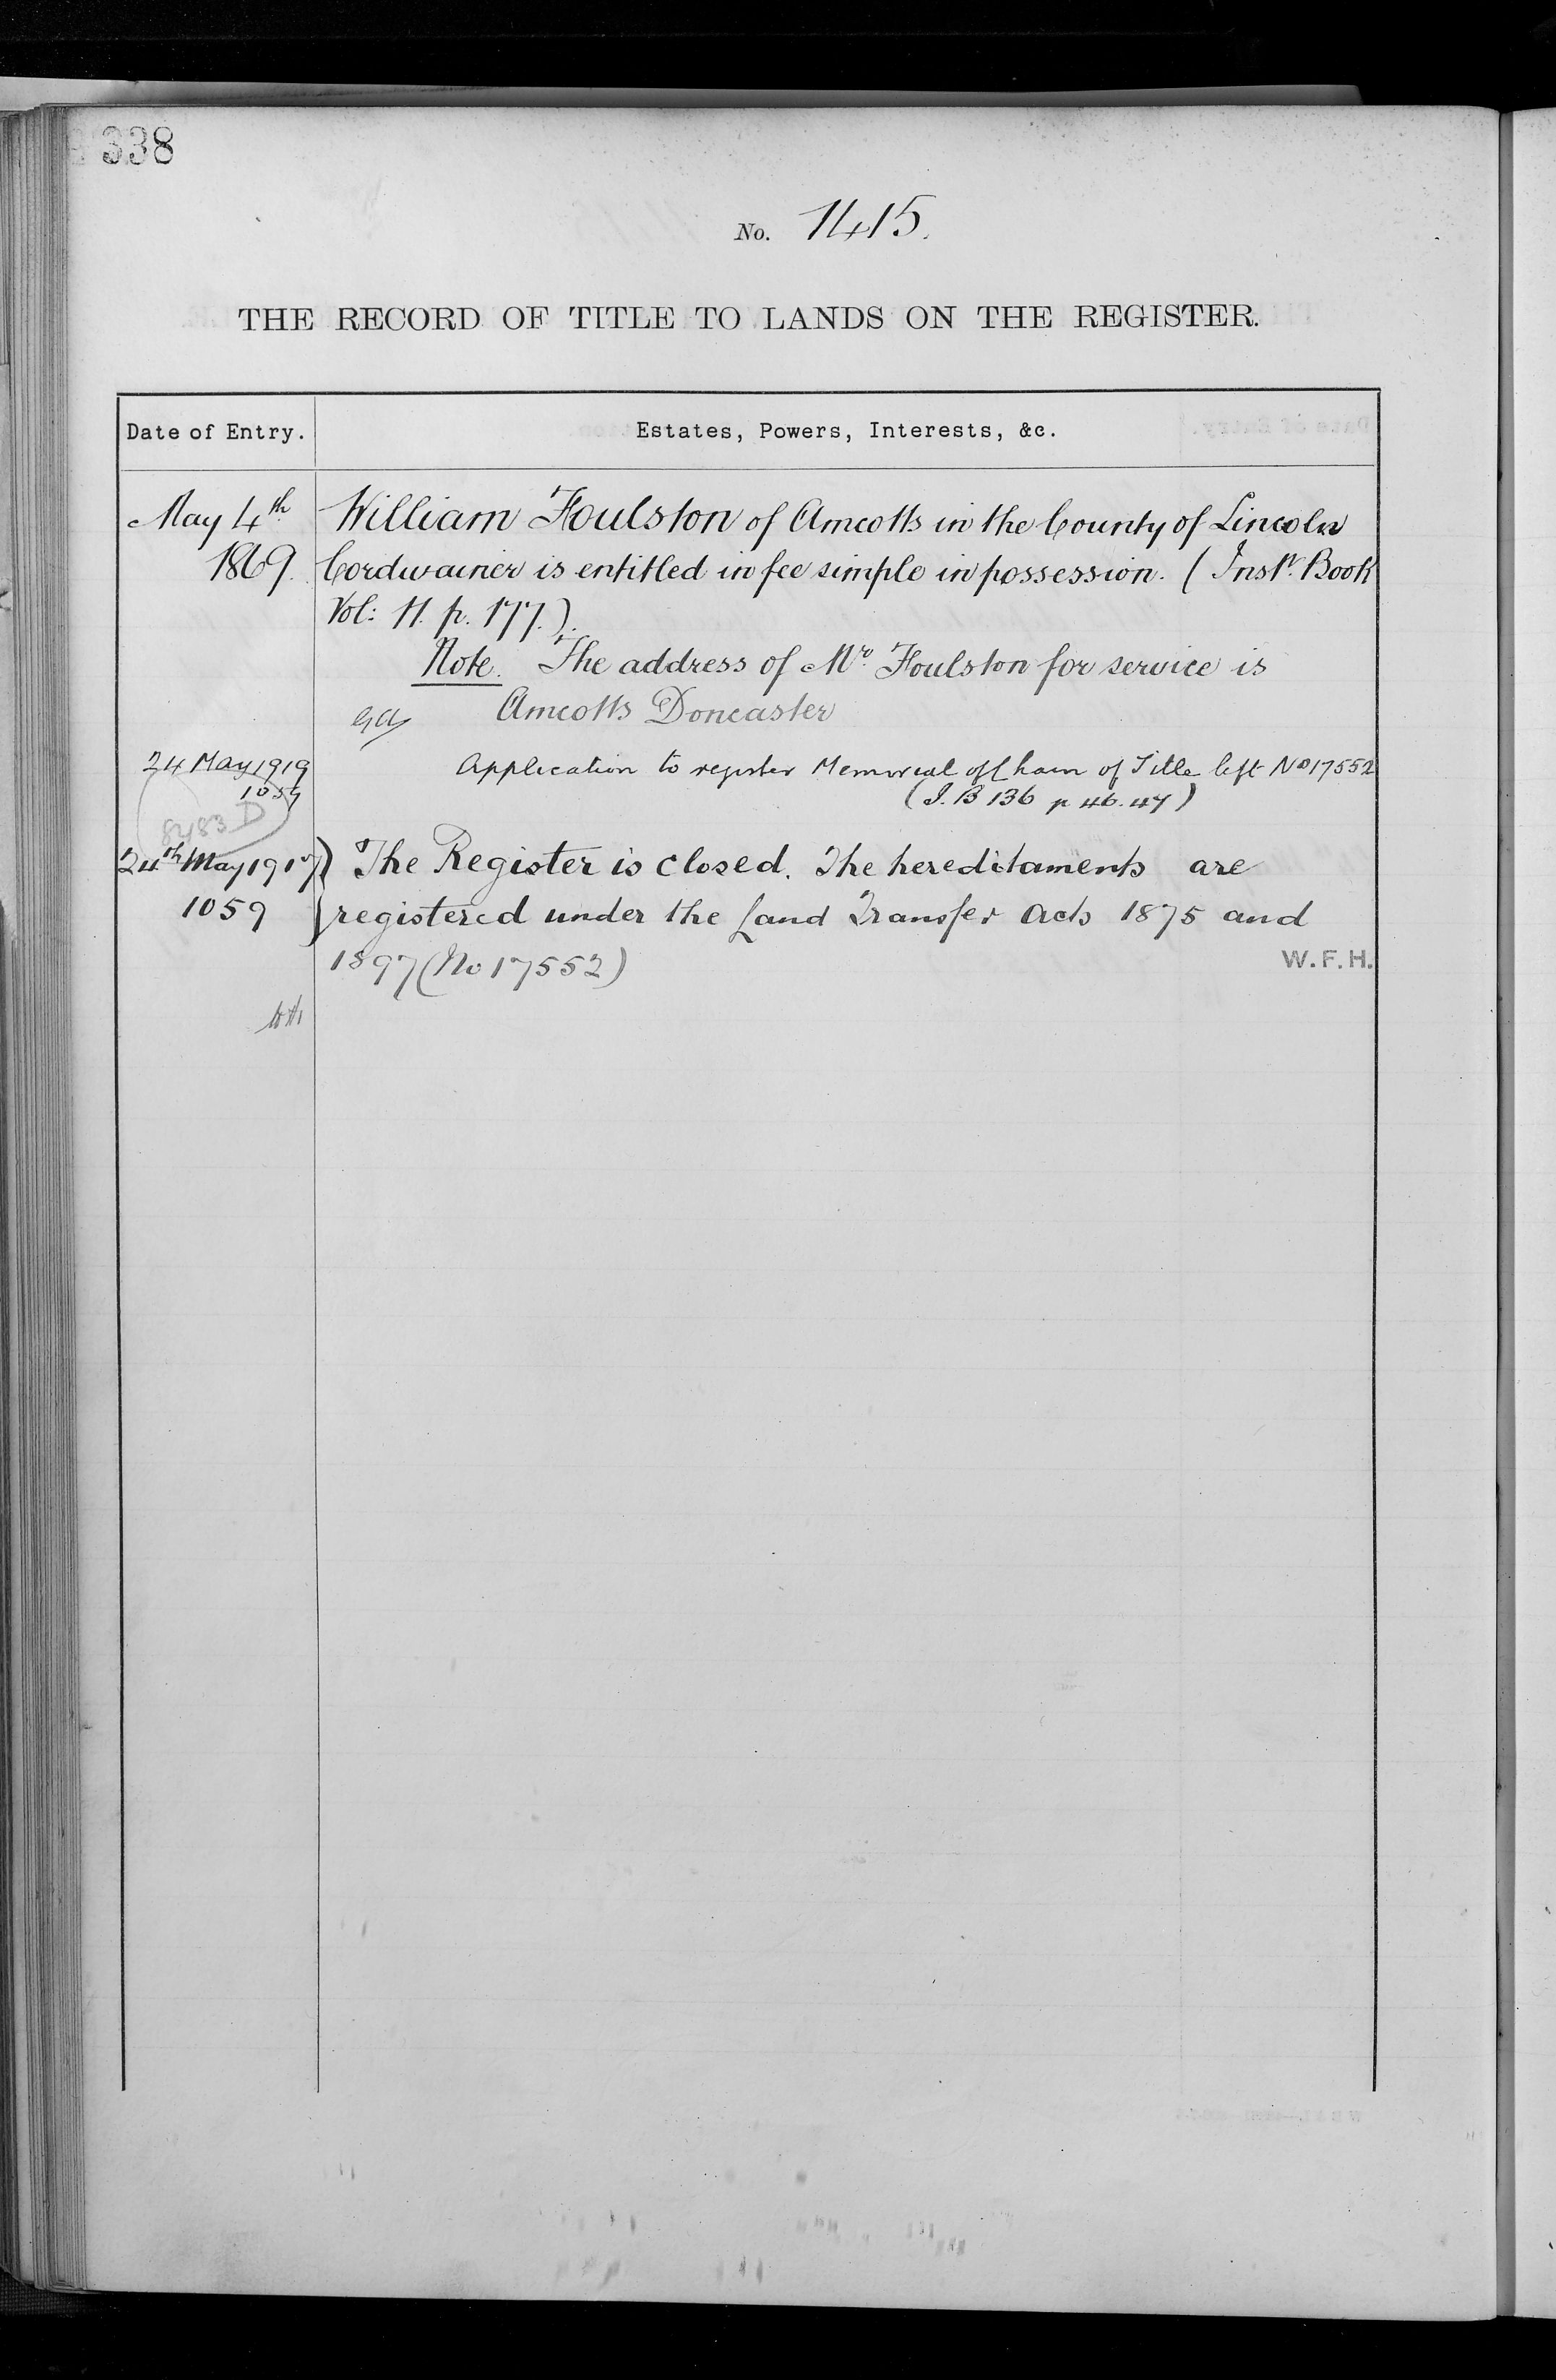 338
No. 1415.
THE RECORD OF TITLE TO LANDS ON THE REGISTER.
Date of Entry.
Estates, Powers, Interests, &c.
May 4th
1869.
William Foulston of Amcotts in the County of Lincoln
Cordwainer is entitled in fee simple in possession. (Inst. Book
Vol: 11. p. 177.).
Note. The address of Mr. Foulston for service is
Amcotts Doncaster
24 May 1919
1059
Application to register Memorial of Chain of Title left No 17552
(I. B 136 p 46.47)
8483 D
24th May 1919
1059
The Register is closed. The hereditaments are
registered under the Land Transfer Acts 1875 and
1897 (No 17552)
W.F.H.